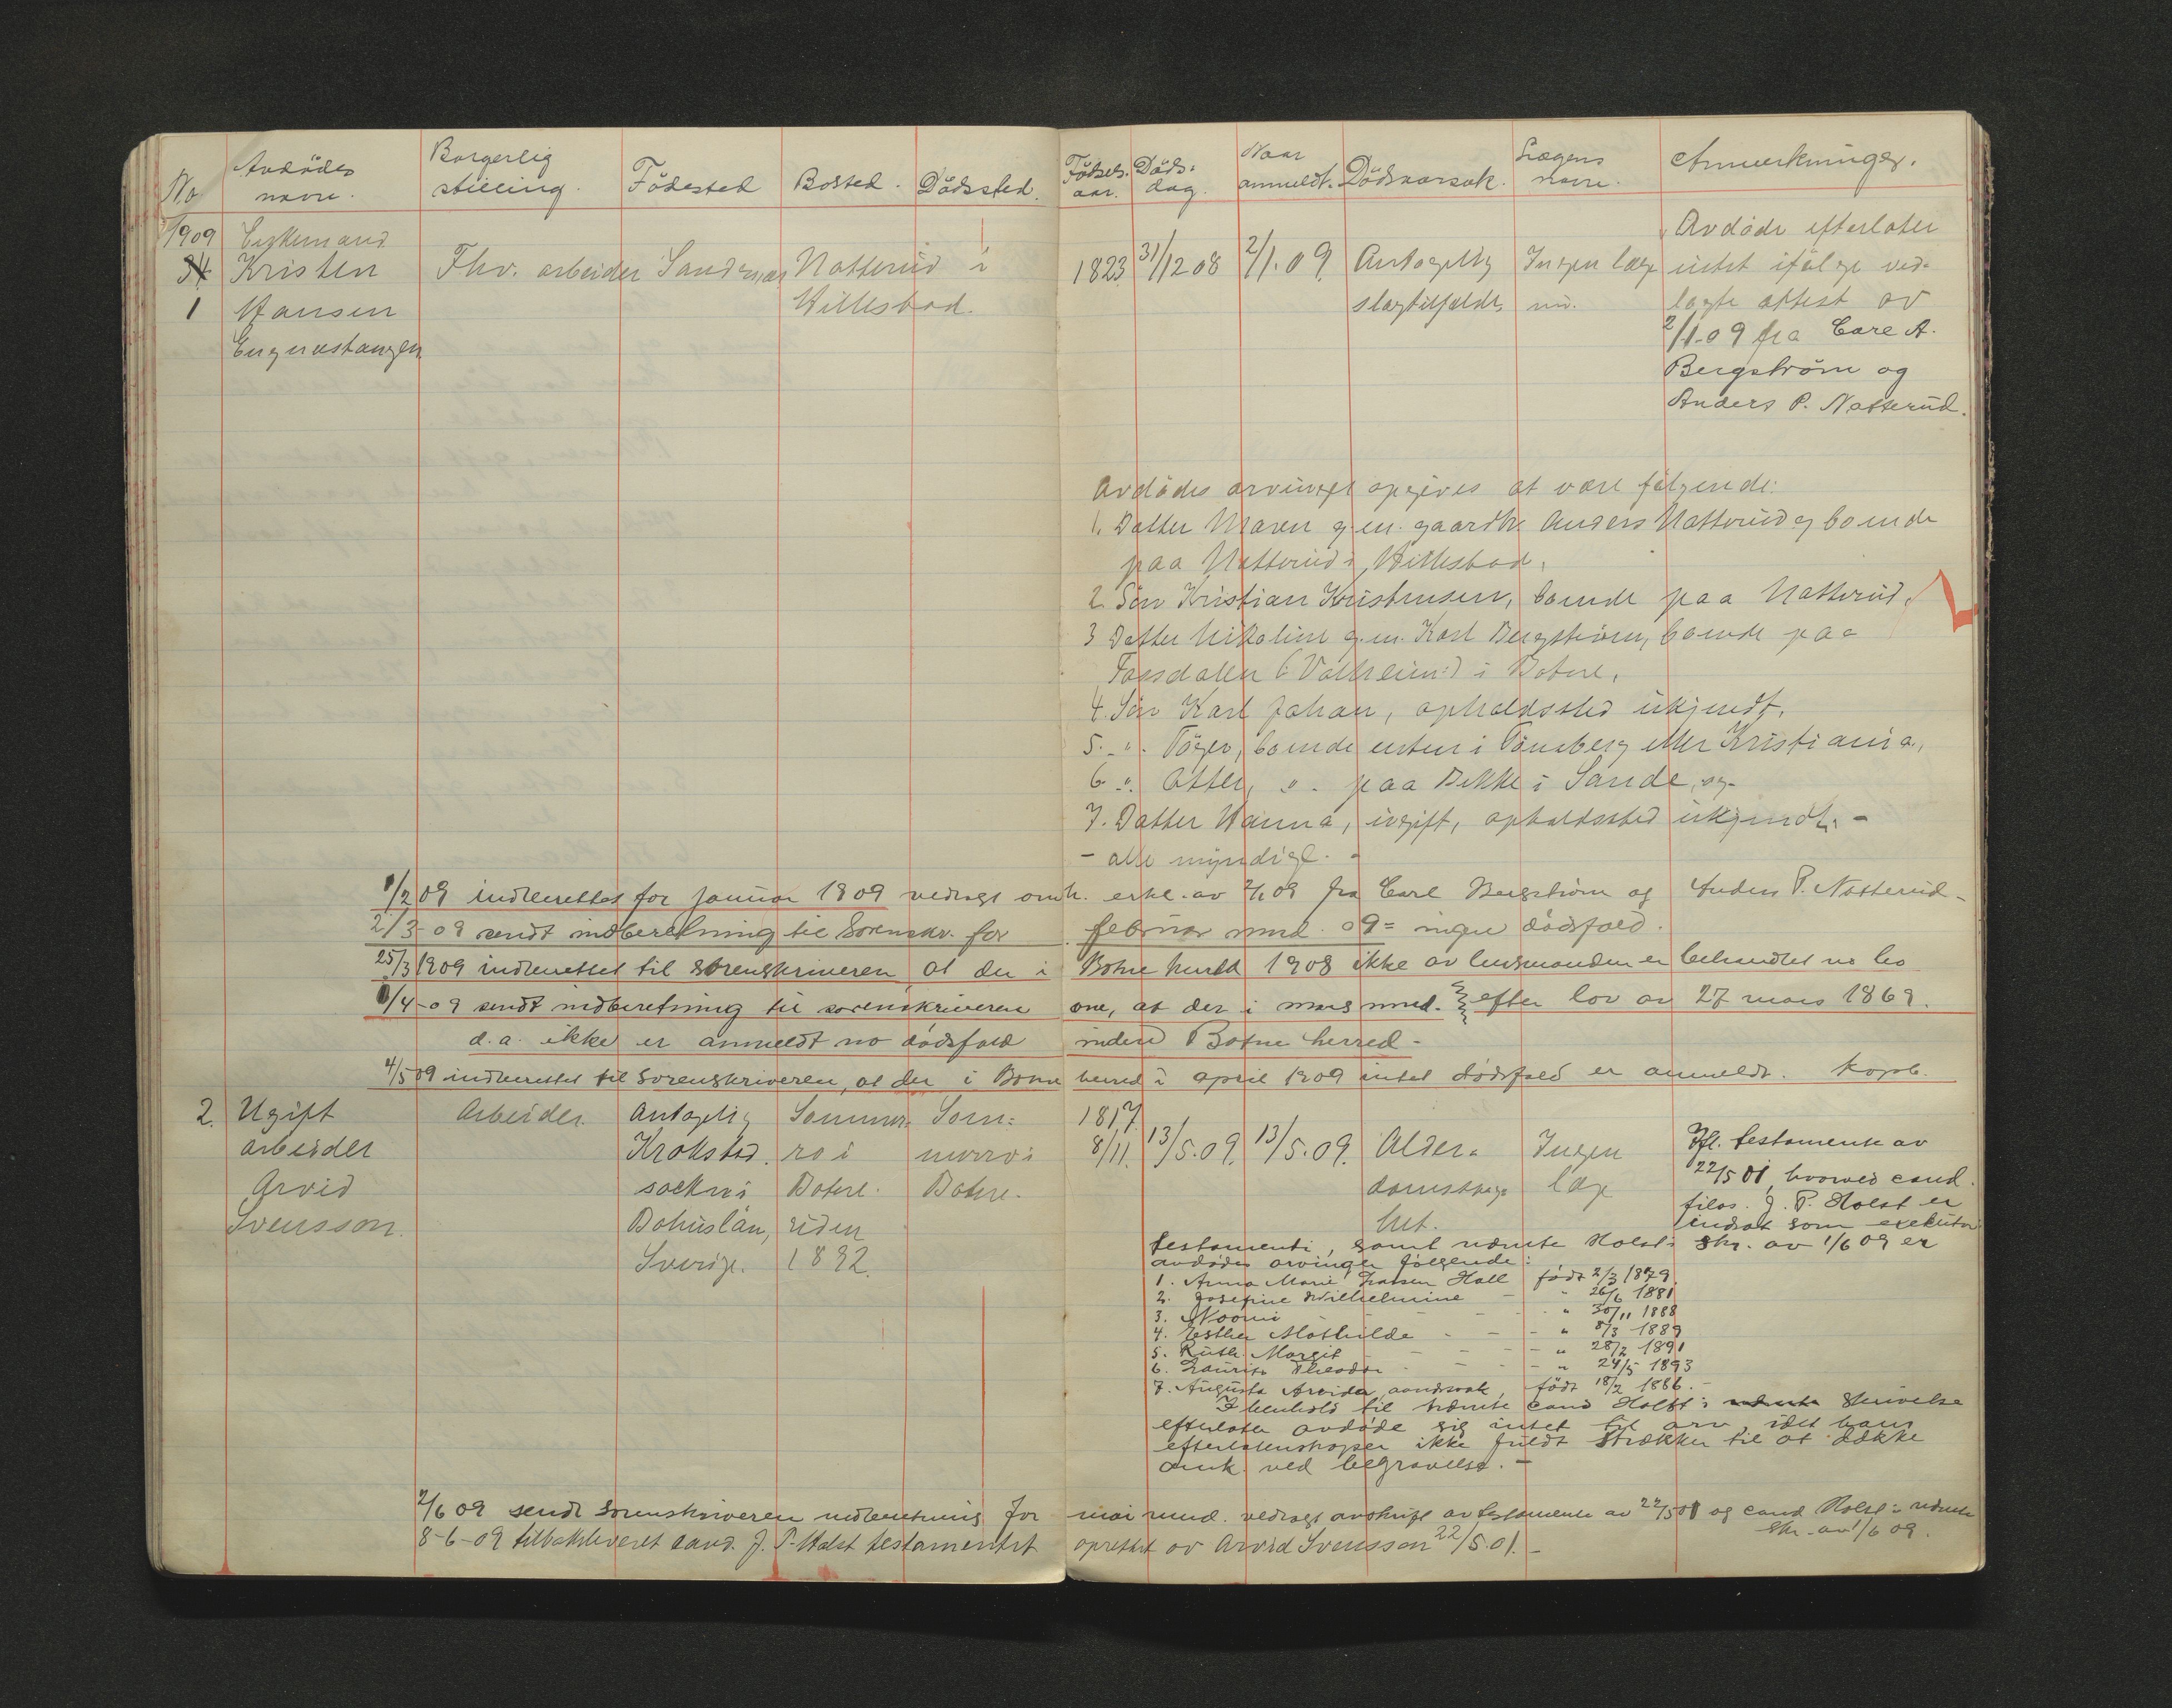 No
Avdödes navn.
Borgerlig stilling.
Födested
Bosted.
Dödssted.
Födsels- aar.
Döds- dag.
Naar anmeldt.
Dödsaarsak.
Lægens navn.
Anmerkninger.
1909
Enkemand
Kristen
Hansen
Engnæstangen
1
Fhv. arbeider
Sandesnæs
Natterud i
Hillestad.
1823
31/12 08
2/1.09.
Antagelig
slagtilfælde
Ingen læge
Avdöde efterlater
intet ifölge ved-
lagte attest av
2/1-09 fra Carl A.
Bergström og
Anders P. Natterud.
Avdödes arvinger opgives at være følgende:
1. Datter Maren g.m. gaardbr. Anders Natterud og boende
paa Natterud i Hillestad,
2. Sön Kristian Kristensen, boende paa Natterud,
3 Datter Nikoline g.m. Karl Bergström, boende paa
Fossdalen (: Valheim:) i Botne,
4. Sön Karl Johan, opholdssted ukjendt,
5. -"- Töger, boende enten i Tönsberg eller Kristiania,
6 -"- Otter, -"- paa Bekke i Sande, og
7. Datter Hanna, ugift, opholdssted ukjendt. -
- alle myndige. -
1/2 09 indberettet for januar 1909 vedlagt omh. erkl. av 2/1 09 fra Carl Bergström og Anders P. Natterud -
2/3-09 sendt indberetning til Sorenskr. for februar mnd. 09 = ingen dödsfald.
25/3 1909 indberettet til sorenskriveren at der i Botne herred 1908 ikke av lensmanden er behandlet no bo
efter lov av 27 mars 1869.
1/4-09 sendt indberetning til sorenskriveren om, at der i mars mnd.
d.a. ikke er anmeldt no dödsfald inden Botne herred -
4/5 09 indberettet til sorenskriveren, at der i Botne herred i april 1909 intet dödsfald er anmeldt. Kopb.
2.
Ugift
arbeider
Arvid
Svensson.
Arbeider.
Antagelig
Krokstad
sockn i
Bohuslän,
Sverige.
Sommer-
ro i
Botne.
siden
1892.
Som-
merro i
Botne.
1817
8/11.
13/5.09.
13/5.09.
Alder-
domssvag-
het.
Ingen
læge
Ifl. testamente av
22/5 01, hvorved cand.
filos. J. P. Holst er
indsat som executor
testamenti, samt nævnte Holst's skr. av 1/6 09 er
avdödes arvinger følgende:
1. Anna Marie Larsen Hall född 2/3 1879.
2. Josefine Wilhelmine - " 26/6 1881
3. Noomi - - - " 30/11 1888
4. Esther Mathilde - - - " 8/3 1889
5. Ruth Margit - - - " 28/2 1891
6. Laurits Theodor - - - " 24/5 1893
7. Augusta Arvida, aandssvak, född 18/2 1886. -
I henhold til nævnte cand Holst's skrivelse
efterlater avdöde sig intet til arv, idet hans
efterladenskaper ikke fuldt strækker til at dække
omk. ved begravelse. -
2/6 09 sendt sorenskriveren indberetning for mai mnd. vedlagt avskrift av testamente av 22/5 01 og cand Holst's nævnte
skr. av 1/6 09.
8-6-09 tilbakleveret cand. J. P. Holst testamentet oprettet av Arvid Svensson 22/5.01. -